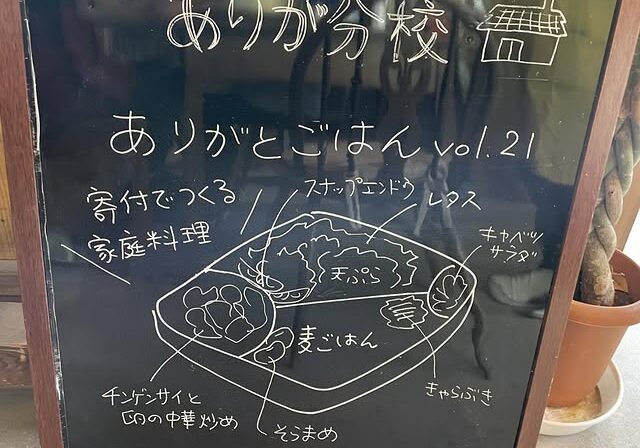 ありが分校
ありがとごはん vol.21
寄付でつくる
家庭料理
スナップエンドウ
レタス
キャベツ
サラダ
天ぷら
麦ごはん
チンゲンサイと
卵の中華炒め
そらまめ
きゃらぶき